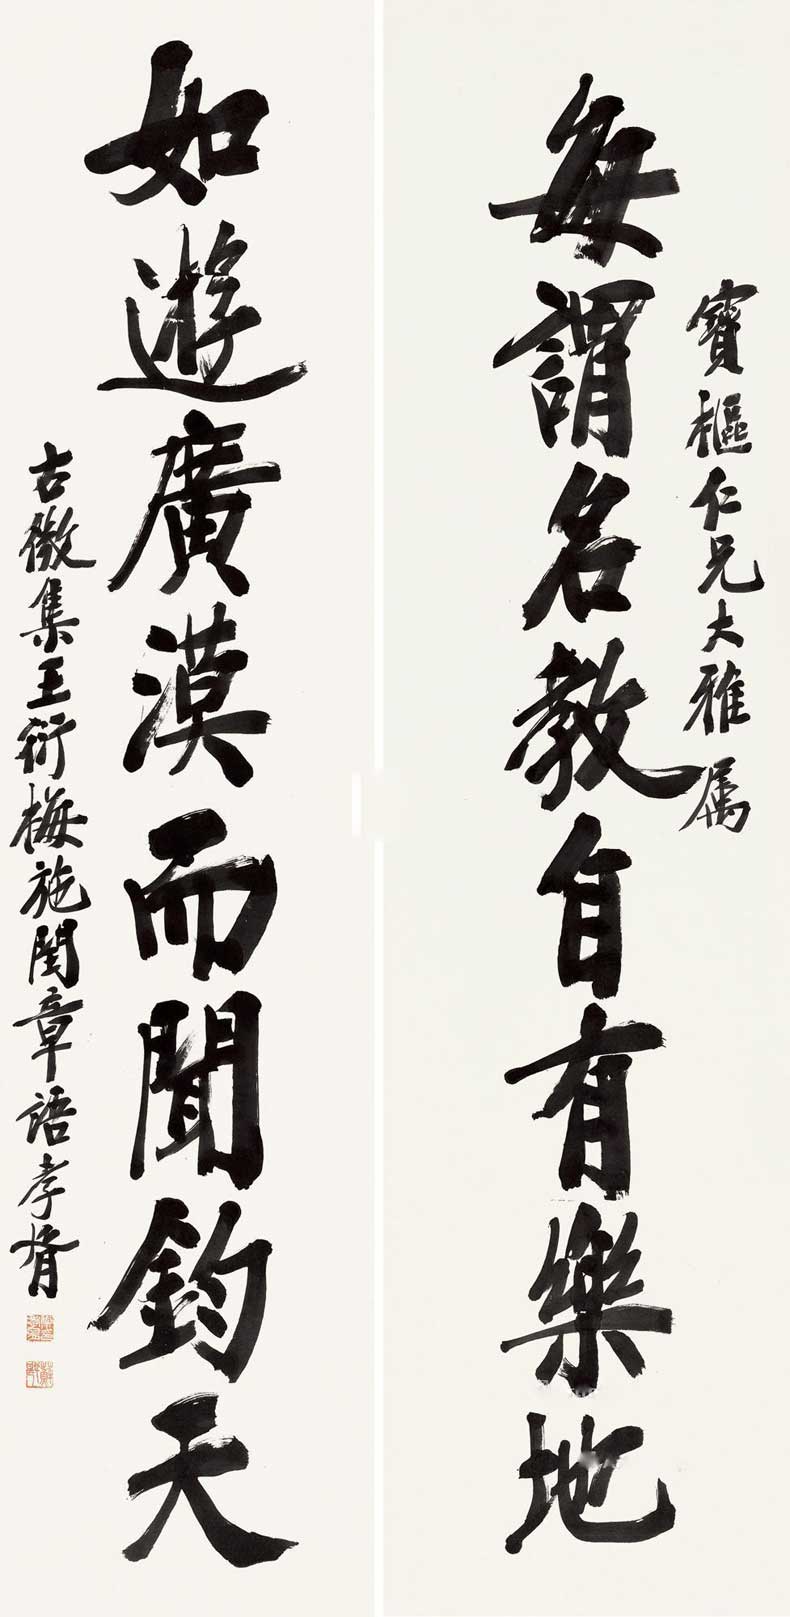 寶樞仁兄大雅属
每謂名教自有樂地
如遊廣漠而聞鈞天
古微集王衍梅施閏章語孝胥